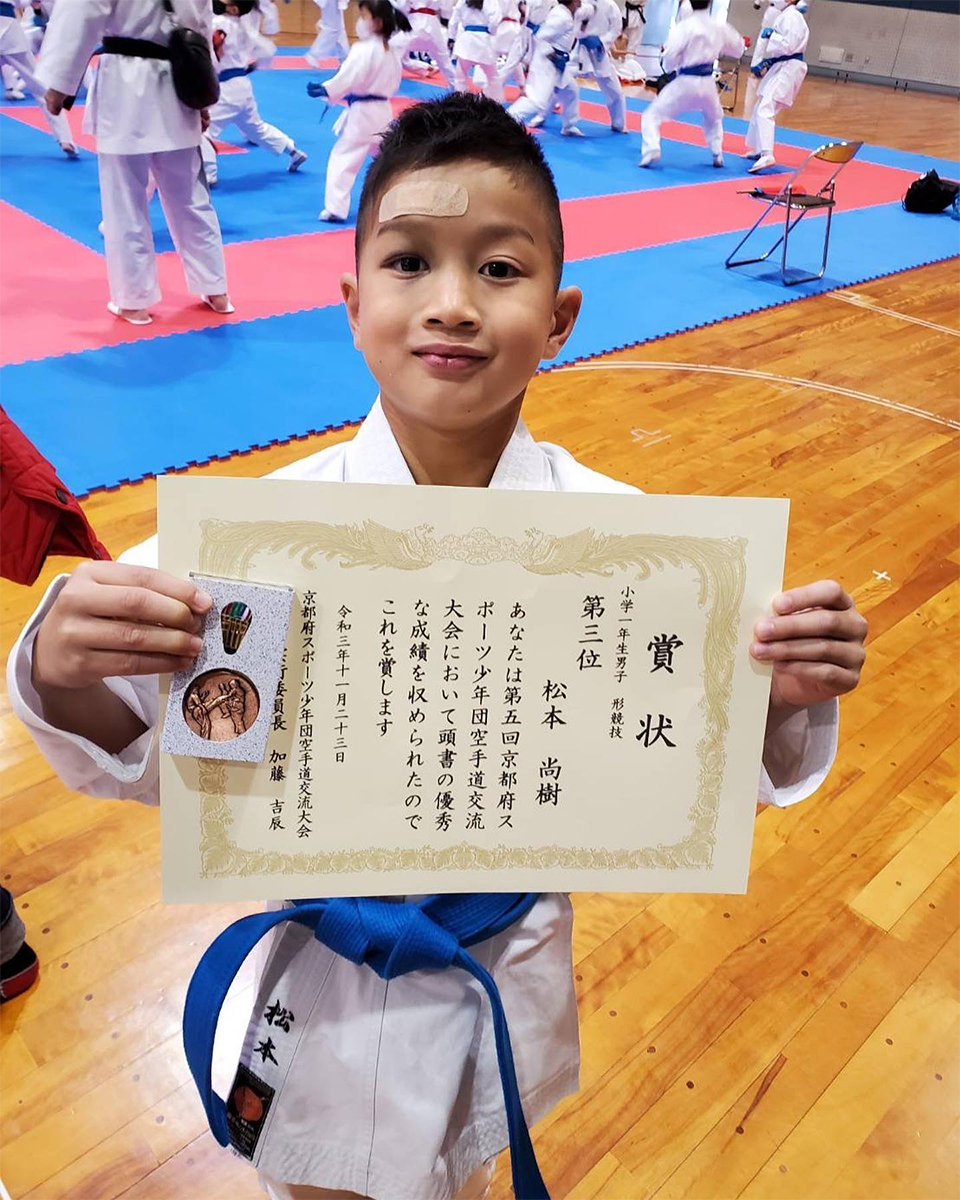 賞状
小学一年生男子 形競技
第三位
松本 尚樹
あなたは第五回京都府ス
ポーツ少年団空手道交流
大会において頭書の優秀
な成績を収められたので
これを賞します
令和三年十一月二十三日
京都府スポーツ少年団空手道交流大会
委員長 加藤 吉辰
松本